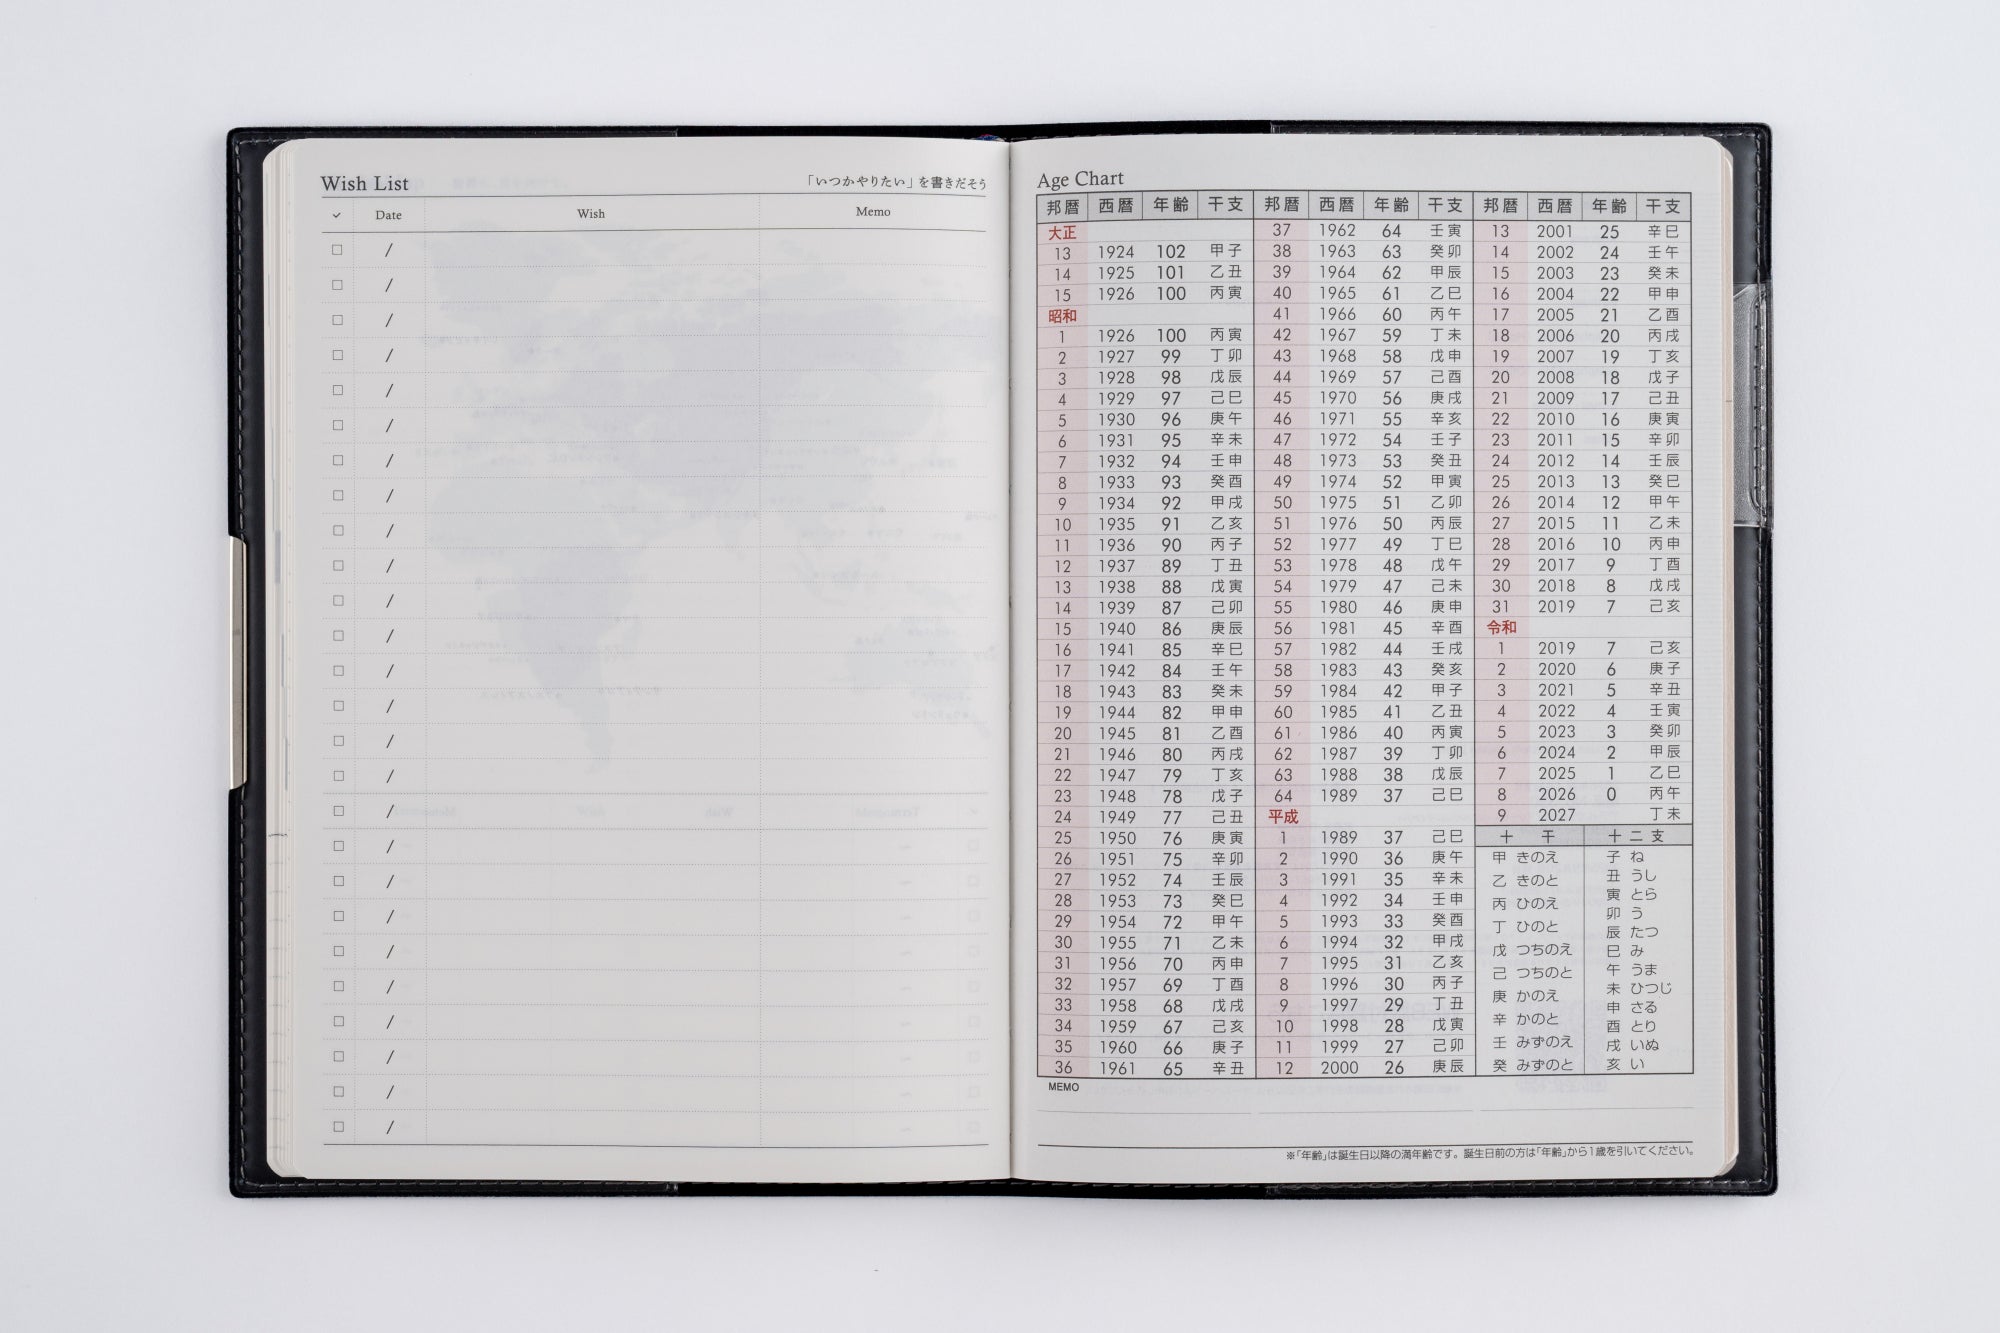 Wish List 「いつかやりたい」を書きだそう
✓ Date Wish Memo
□ /
□ /
□ /
□ /
□ /
□ /
□ /
□ /
□ /
□ /
□ /
□ /
□ /
□ /
□ /
□ /
□ /
□ /
□ /
□ /
□ /
□ /
□ /
□ /
□ /
□ /
Age Chart
邦暦 西暦 年齢 干支
大正
13 1924 102 甲子
14 1925 101 乙丑
15 1926 100 丙寅
昭和
1 1926 100 丙寅
2 1927 99 丁卯
3 1928 98 戊辰
4 1929 97 己巳
5 1930 96 庚午
6 1931 95 辛未
7 1932 94 壬申
8 1933 93 癸酉
9 1934 92 甲戌
10 1935 91 乙亥
11 1936 90 丙子
12 1937 89 丁丑
13 1938 88 戊寅
14 1939 87 己卯
15 1940 86 庚辰
16 1941 85 辛巳
17 1942 84 壬午
18 1943 83 癸未
19 1944 82 甲申
20 1945 81 乙酉
21 1946 80 丙戌
22 1947 79 丁亥
23 1948 78 戊子
24 1949 77 己丑
25 1950 76 庚寅
26 1951 75 辛卯
27 1952 74 壬辰
28 1953 73 癸巳
29 1954 72 甲午
30 1955 71 乙未
31 1956 70 丙申
32 1957 69 丁酉
33 1958 68 戊戌
34 1959 67 己亥
35 1960 66 庚子
36 1961 65 辛丑
邦暦 西暦 年齢 干支
37 1962 64 壬寅
38 1963 63 癸卯
39 1964 62 甲辰
40 1965 61 乙巳
41 1966 60 丙午
42 1967 59 丁未
43 1968 58 戊申
44 1969 57 己酉
45 1970 56 庚戌
46 1971 55 辛亥
47 1972 54 壬子
48 1973 53 癸丑
49 1974 52 甲寅
50 1975 51 乙卯
51 1976 50 丙辰
52 1977 49 丁巳
53 1978 48 戊午
54 1979 47 己未
55 1980 46 庚申
56 1981 45 辛酉
57 1982 44 壬戌
58 1983 43 癸亥
59 1984 42 甲子
60 1985 41 乙丑
61 1986 40 丙寅
62 1987 39 丁卯
63 1988 38 戊辰
64 1989 37 己巳
平成
1 1989 37 己巳
2 1990 36 庚午
3 1991 35 辛未
4 1992 34 壬申
5 1993 33 癸酉
6 1994 32 甲戌
7 1995 31 乙亥
8 1996 30 丙子
9 1997 29 丁丑
10 1998 28 戊寅
11 1999 27 己卯
12 2000 26 庚辰
邦暦 西暦 年齢 干支
13 2001 25 辛巳
14 2002 24 壬午
15 2003 23 癸未
16 2004 22 甲申
17 2005 21 乙酉
18 2006 20 丙戌
19 2007 19 丁亥
20 2008 18 戊子
21 2009 17 己丑
22 2010 16 庚寅
23 2011 15 辛卯
24 2012 14 壬辰
25 2013 13 癸巳
26 2014 12 甲午
27 2015 11 乙未
28 2016 10 丙申
29 2017 9 丁酉
30 2018 8 戊戌
31 2019 7 己亥
令和
1 2019 7 己亥
2 2020 6 庚子
3 2021 5 辛丑
4 2022 4 壬寅
5 2023 3 癸卯
6 2024 2 甲辰
7 2025 1 乙巳
8 2026 0 丙午
9 2027 丁未
十干
甲 きのえ
乙 きのと
丙 ひのえ
丁 ひのと
戊 つちのえ
己 つちのと
庚 かのえ
辛 かのと
壬 みずのえ
癸 みずのと
十二支
子 ね
丑 うし
寅 とら
卯 う
辰 たつ
巳 み
午 うま
未 ひつじ
申 さる
酉 とり
戌 いぬ
亥 い
MEMO
※「年齢」は誕生日以降の満年齢です。誕生日前の方は「年齢」から1歳を引いてください。